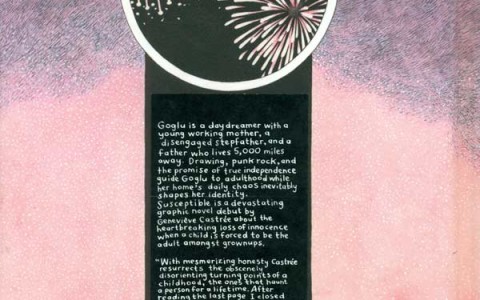 Goglu is a day dreamer with a
young working mother, a
disengaged stepfather, and a
father who lives 5,000 miles
away. Drawing, punk rock, and
the promise of true independence
guide Goglu to adulthood while
her home's daily chaos inevitably
shapes her identity.
Susceptible is a devastating
graphic novel debut by
Geneviève Castrée about the
heartbreaking loss of innocence
when a child is forced to be the
adult amongst grownups.
"With mesmerizing honesty Castrée
resurrects the obscenely
disorienting turning points of a
childhood, the ones that haunt
a person for a lifetime. After
reading the last page I closed